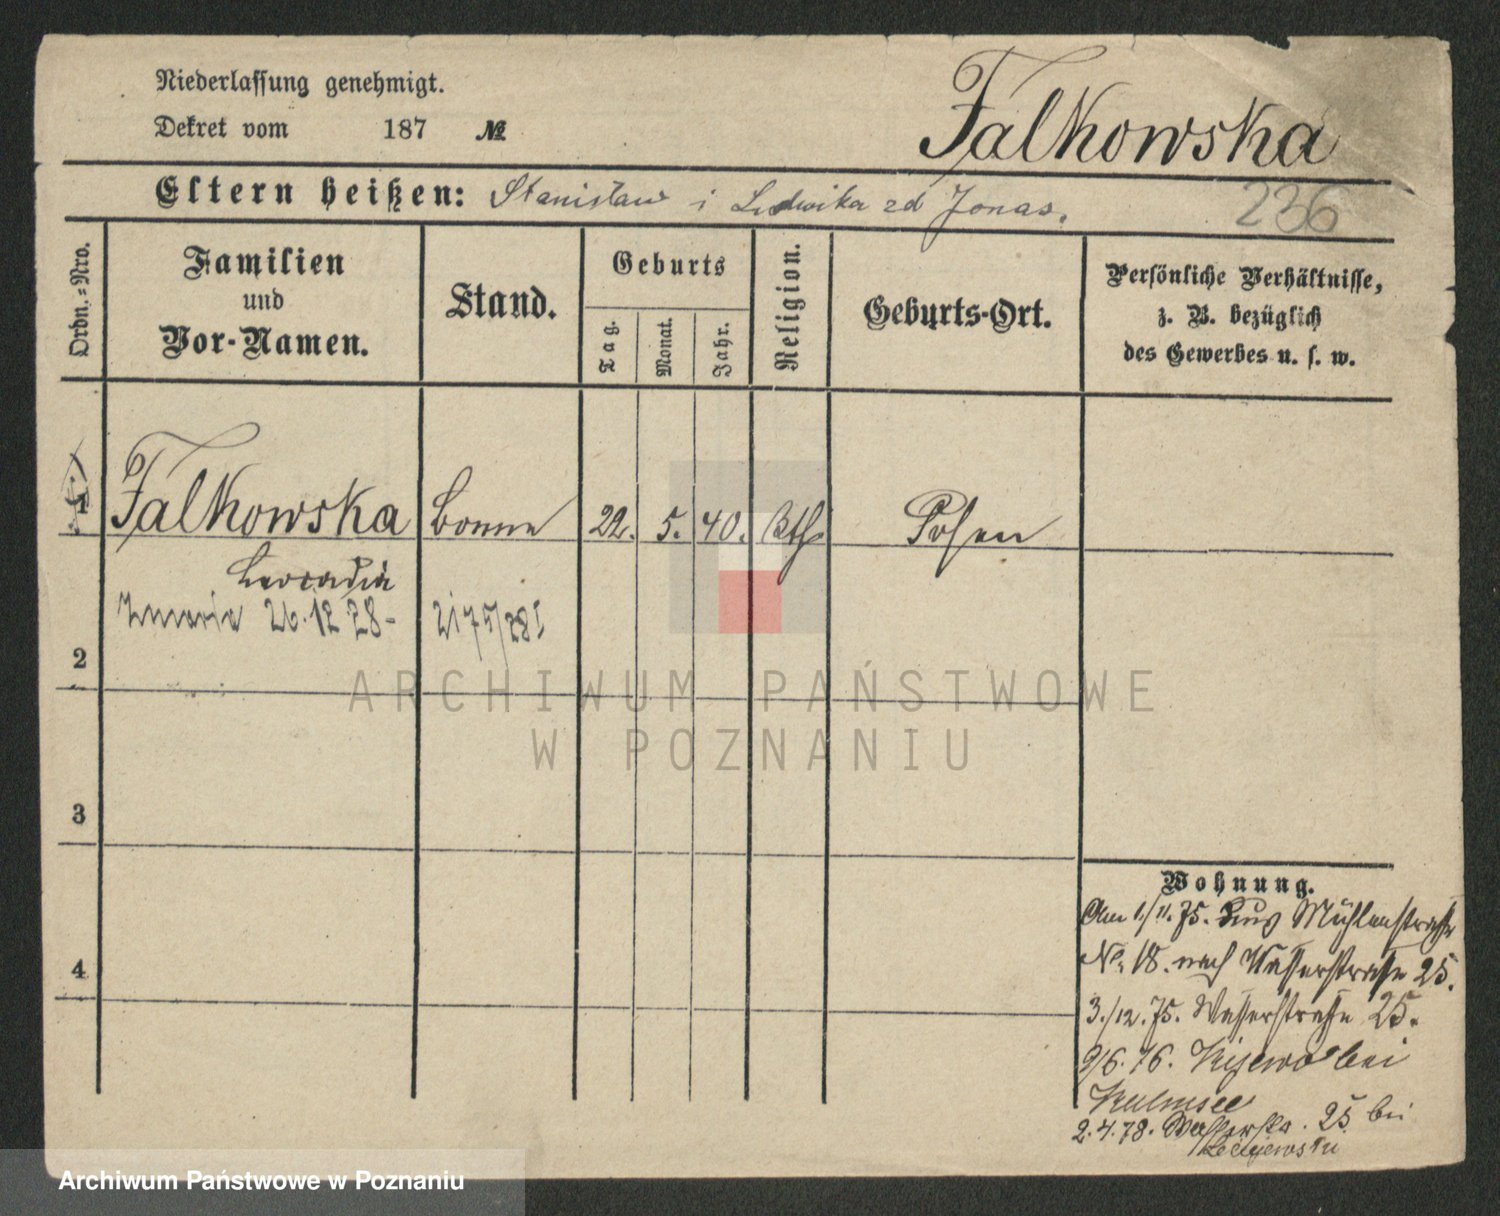 Niederlassung genehmigt.
Dekret vom 187 №
Falkowska
Eltern heißen: Stanisław i Ludwika zd Jonas.
236
Ordn.-Nro.
Familien
und
Vor-Namen.
Stand.
Geburts
Tag.
Monat.
Jahr.
Religion.
Geburts-Ort.
Persönliche Verhältnisse,
z. B. bezüglich
des Gewerbes u. s. w.
1
Falkowska Bonne 22. 5. 40. kth Posen
Leocadia
26.12 28-
2
3
4
Wohnung.
Am 1./11. 75. aus Mühlenstrasse
No. 18. nach Wasserstrasse 25.
3./12. 75. Wasserstrasse 25.
9/6. 76. Kijewo bei
Kulmsee
2. 4. 78. Wasserstr. 25 bei
ARCHIWUM PAŃSTWOWE
W POZNANIU
Archiwum Państwowe w Poznaniu